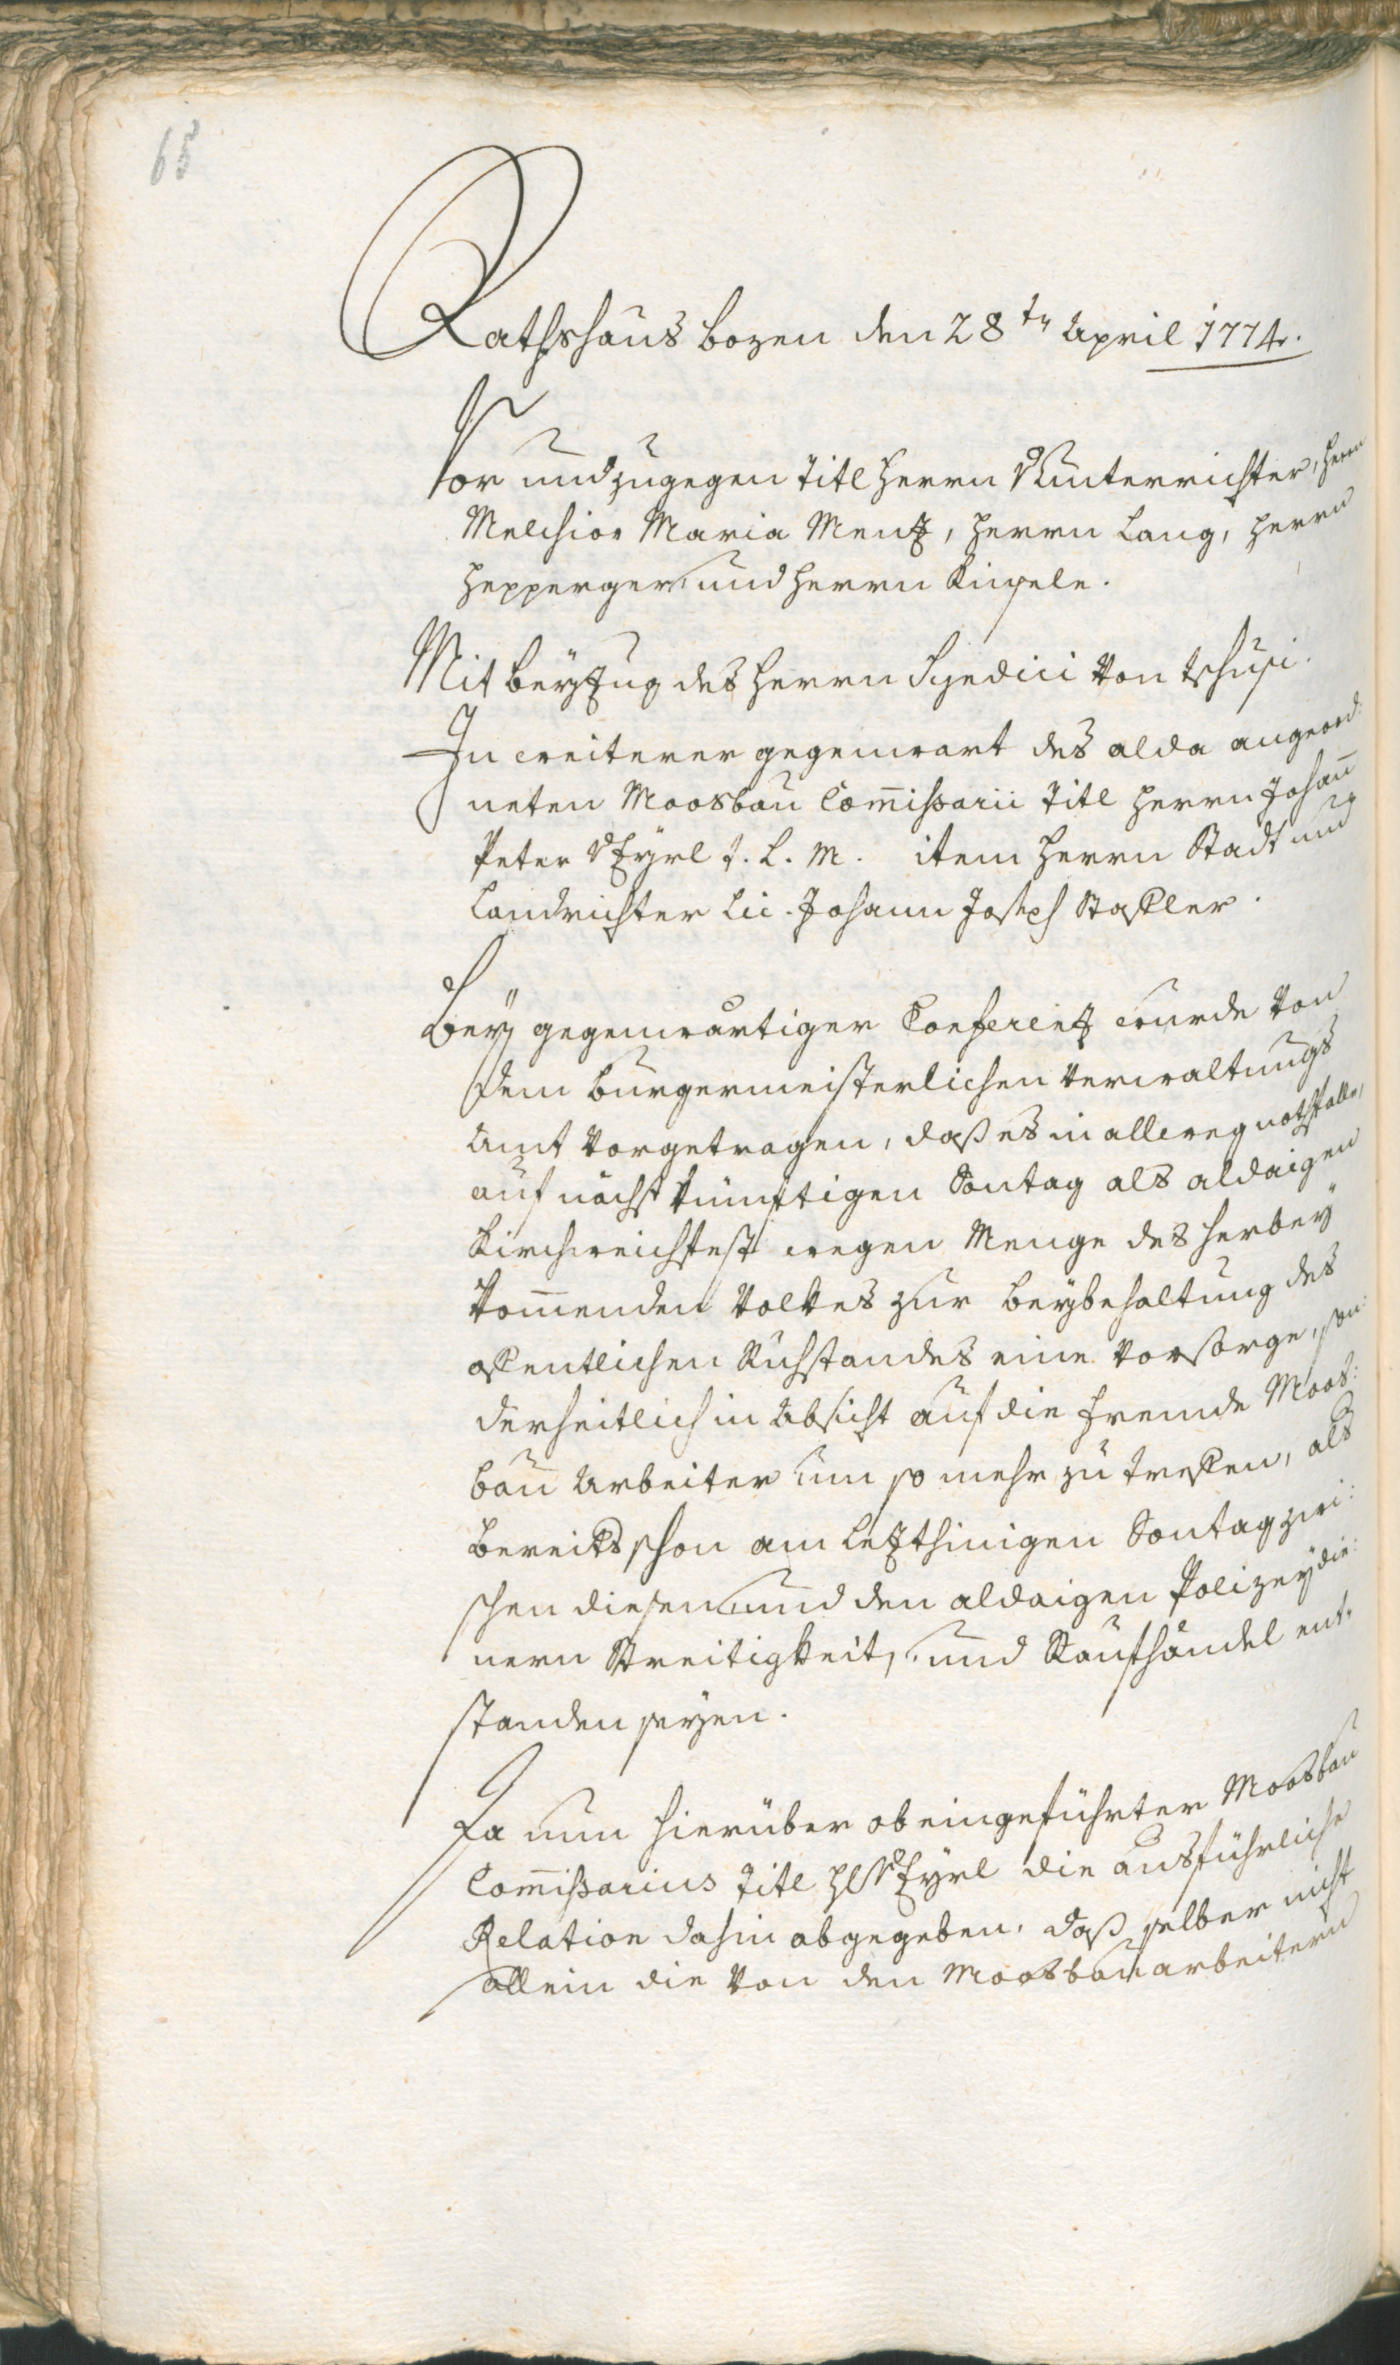 65
Rathshaus Bozen den 28ten April 1774.
Vor und zugegen Titl Herrn v Unterrichter, Herrn
Melchior Maria Menz, Herrn Lang, Herrn
Hepperger und Herrn Kugele.
Mit Beyzug des Herrn Syndici von Tschusi.
In weiterer gegenwart des alda angeord:
neten Moosbau Com̅ißarii Titl Herrn Johan̅
Peter v Eyrl t. L. M. item Herrn Stadt und
Landrichter Lic. Johann Joseph Stafler.
Bey gegenwärtiger Conferenz wurde von
dem burgermeisterlichen Verwaltungs
Amt vorgetragen, daß es in allweg nothfalle,
auf nächst künftigen Sontag als aldaigen
Kirchweichfest wegen Menge des herbey
kom̅enden Volkes zur beybehaltung des
offentlichen Ruhstandes eine Vorsorge, son:
derheitlich in Absicht auf die fremde Moos:
bau Arbeiter um so mehr zu treffen, als
bereits schon am lezthinigen Sontag zwi:
schen diesen und den aldaigen Polizeydie:
nern Streitigkeit, und Raufhändel ent:
standen seyen.
Da nun hierüber obeingeführter Moosbau
Com̅ißarius Titl Hl v Eyrl die ausführliche
Relation dahin abgegeben, daß selber nicht
allein die von den Moosbauarbeitern